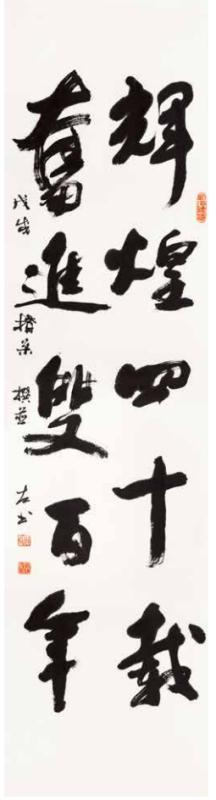 輝煌四十載
奮進雙百年
戊戌 撰並 左書